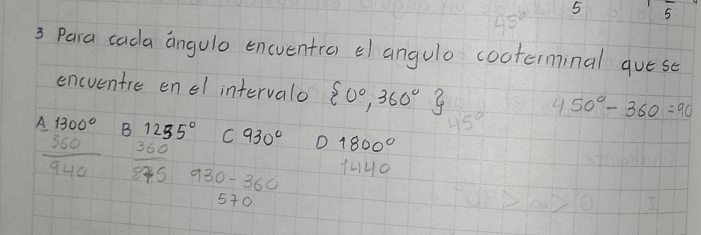 5 5
45°
3 Para cada ángulo encuentra el angulo cooterminal que se
encuentre en el intervalo {0°, 360° }
45°
450° - 360 = 90
A 1300° B 1235° C 930° D 1800°
360 360 1440
940 875 930 - 360
570